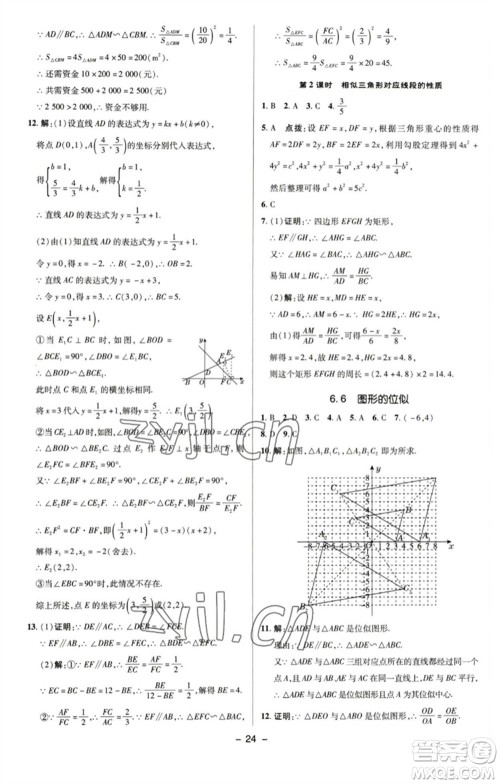 ∵ AD∥BC, ∴ △ADM∽△CBM, ∴ S△ADM/S△CBM = (10/20)² = 1/4.
∴ S△CBM = 4S△ADM = 4×50 = 200(m²).
∴ 还需资金 10×200 = 2 000(元).
∴ 共需资金 500 + 2 000 = 2 500(元).
∵ 2 500 > 2 000, ∴ 资金不够用.
12. 解: (1)设直线 AD 的表达式为 y = kx + b(k≠0),
将点 D(0,1), A(4/3, 5/3) 的坐标分别代入表达式,
得{b = 1, 5/3 = 4/3 k + b, 解得{b = 1, k = 1/2.
∴ 直线 AD 的表达式为 y = 1/2 x + 1.
(2)由(1)知直线 AD 的表达式为 y = 1/2 x + 1.
令 y = 0, 得 x = -2. ∴ B(-2,0). ∴ OB = 2.
令 y = -x + 3 = 0, 得 x = 3. ∴ C(3,0), ∴ BC = 5.
设 E(x, 1/2 x + 1),
①当 E₁C⊥BC 时, 如图, ∠BOD =
∠BCE₁ = 90°, ∠DBO = ∠E₁BC,
∴ △BOD∽△BCE₁.
此时点 C 和点 E₁ 的横坐标相同.
将 x = 3 代入 y = 1/2 x + 1, 解得 y = 5/2. ∴ E₁(3, 5/2).
②当 CE₂⊥AD 时, 如图, ∠BOD = ∠BE₂C = 90°.
∵ ∠DBO = ∠CBE₂, ∴ △BOD∽△BE₂C.
如图, 过点 E₂ 作 E₂F⊥x 轴于点 F, 则 ∠E₂FC = ∠BFE₂ = 90°.
∴ △E₂BF∽△CE₂F, ∴ E₂F/BF = CF/E₂F,
∴ E₂F² = CF·BF, 即 (1/2 x + 1)² = (3-x)(x+2).
解得 x₁ = 2, x₂ = -2(不合题意, 舍去).
∴ E₂(2,2).
③当 ∠EBC = 90° 时, 此情况不存在.
综上所述, 点 E 的坐标为(3, 5/2)或(2,2).
13. (1)证明: ∵ DE∥AC, ∴ ∠DEB = ∠FCE.
∵ EF∥AB, ∴ ∠DBE = ∠FEC. ∴ △BDE∽△EFC.
(2)解: ①∵ EF∥AB, ∴ BE/EC = AF/FC = 1/2.
∵ EC = BC - BE = 12 - BE, ∴ BE/(12-BE) = 1/2, 解得 BE = 4.
②∵ AF/FC = 1/2, ∴ FC/AC = 2/3. ∵ EF∥AB, ∴ △EFC∽△BAC.
∴ S△EFC/S△ABC = (FC/AC)² = (2/3)² = 4/9.
∴ S△ABC = 9/4 S△EFC = 9/4 × 20 = 45.
第 2 课时 相似三角形对应线段的性质
1. B 2. A 3. C 4. 3/5
5. A 点拨: 设 EF = x, DF = y, 根据三角形重心的性质得
AF = 2DF = 2y, BF = 2EF = 2x, 利用勾股定理得到 4x² +
4y² = c², 4x² + y² = 1/4 a², x² + 4y² = 1/4 b²,
然后整理可得 a² + b² = 5c².
6. C
7. (1)证明: ∵ 四边形 EFGH 为矩形,
∴ EF∥GH, ∴ ∠AHG = ∠ABC.
又∵ ∠HAG = ∠BAC, ∴ △AHG∽△ABC.
易知 AM⊥HG, ∴ AM/AD = HG/BC.
(2)解: 设 HE = x, MD = HE = x,
∵ AD = 6, ∴ AM = AD - MD = 6 - x.
由(1)得 AM/AD = HG/BC, ∴ (6-x)/6 = 2x/8,
解得 x = 2.4, ∴ 2x = 4.8.
则矩形 EFGH 的周长 = (2.4 + 4.8)×2 = 14.4.
6.6 图形的位似
1. B 2. D 3. A 4. C 5. B 6. C 7. (-6,4)
8. D 9. C
10. 解: 如图, △A₁B₁C₁ 和 △A₂B₂C₂ 即为所求.
11. 解: △ADE 与 △ABC 是位似图形.
理由: ∵ DE∥BC, ∴ △ADE∽△ABC.
又∵ △ADE 与 △ABC 三组对应点的连线交于点 A,
∴ △ADE 与 △ABC 是位似图形.
12. 证明: ∵ △DEO 与 △ABO 是位似图形, ∴ OD/OA = OE/OB
∵ △OEF 与 △OBC 是位似图形,
- 24 -
zyjl.cn
zyjl.cn
答案圈
MXQE.COM